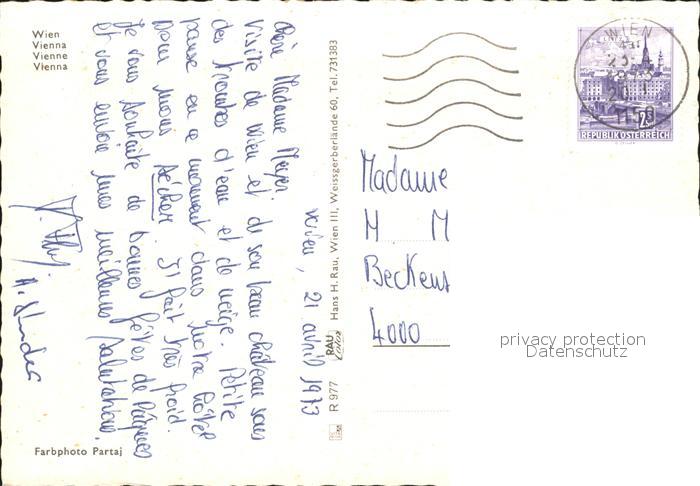 Wien
Vienna
Vienne
Vienna
Wien, 21 avril 1973
Chère Madame Meyer.
Visite de Wien et de son beau château sous
des trombes d'eau et de neige. Petite
pause en ce moment dans notre hôtel
pour nous sécher. Il fait très froid.
Je vous souhaite de bonnes fêtes de Pâques
et vous envoie mes meilleures salutations.
Farbphoto Partaj
R 977 RAU Color Hans H. Rau, Wien III, Weissgerberlände 60, Tel. 731383
WIEN
1150
2 S
REPUBLIK ÖSTERREICH
Madame
M M
Beckens
4000
privacy protection
Datenschutz